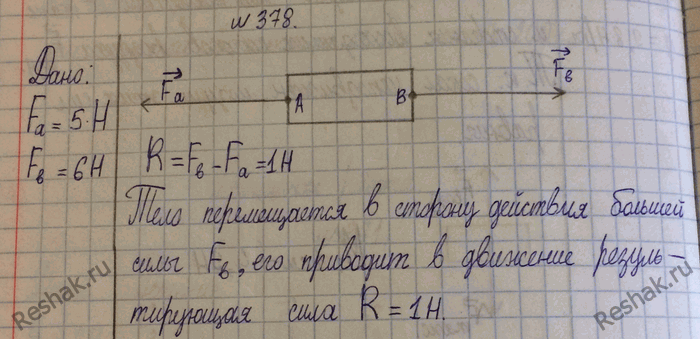 № 378.
Дано:
Fа = 5·Н
Fв = 6Н
Fа
A
B
Fв
R = Fв - Fа = 1Н
Тело перемещается в сторону действия большей
силы Fв, его приводит в движение резуль-
тирующая сила R = 1Н.
Reshak.ru
Reshak.ru